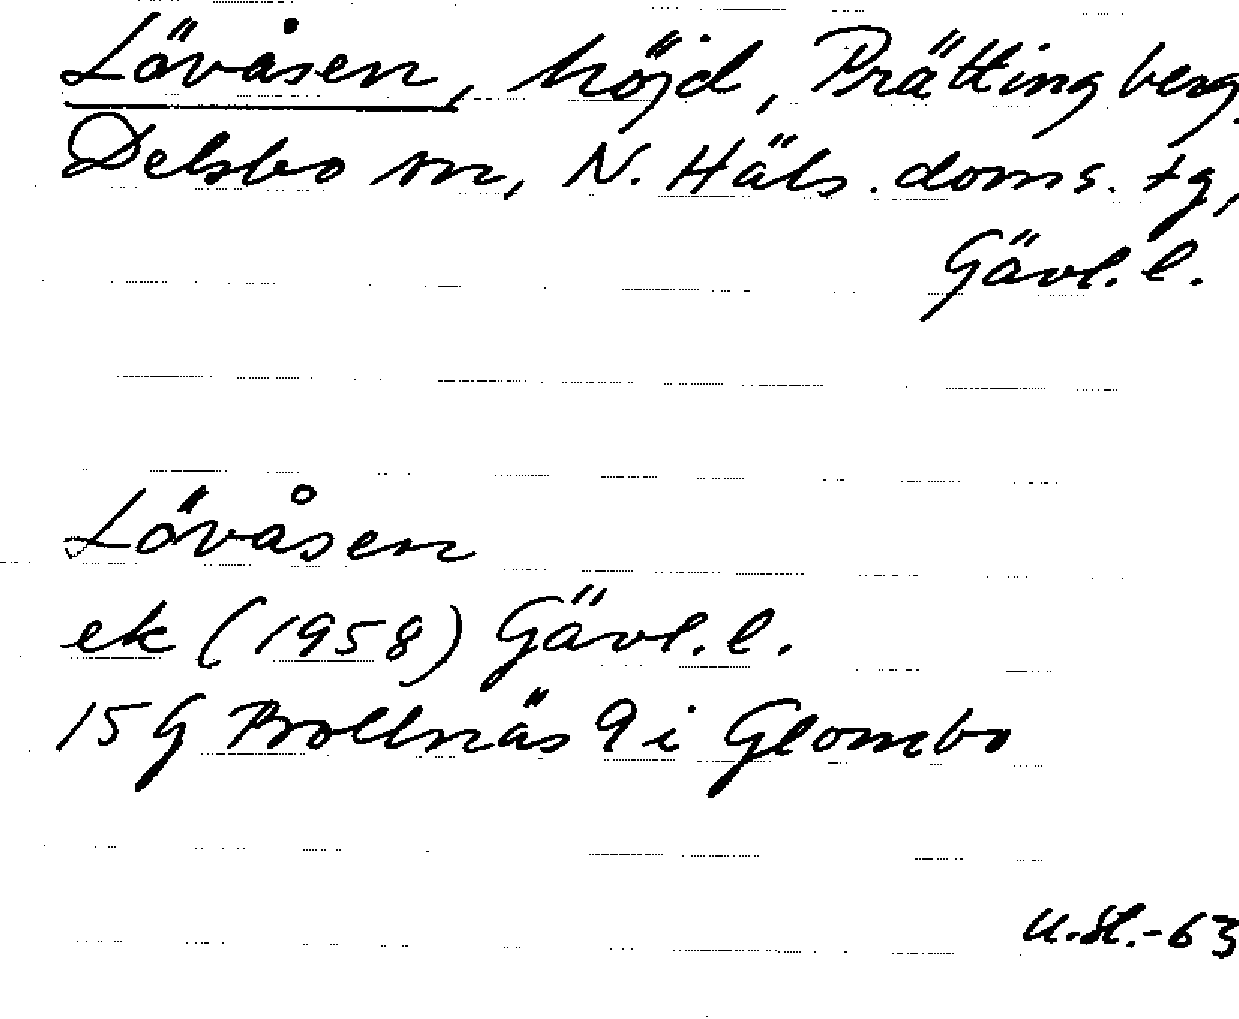 Lövåsen, höjd, Prättingberg,
Delsbo sn, N. Häls. doms. tg,
Gävl. l.
Lövåsen
ek (1958) Gävl. l.
15 G Bollnäs 9 i Glombo
U.Sl.-63